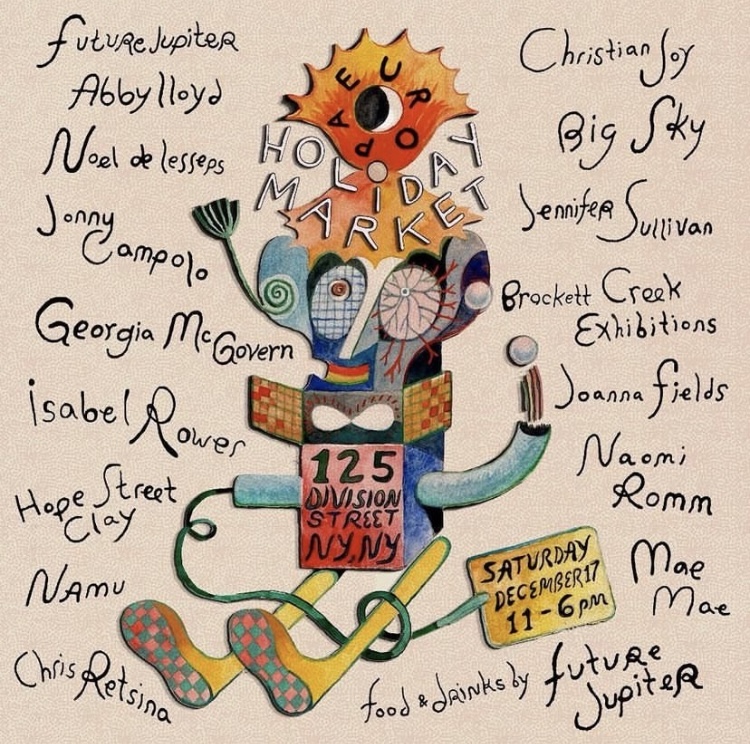 Future Jupiter
Abby lloyd
Noel de lesseps
Jonny
Campolo
Georgia McGovern
Isabel Rower
Hope Street
Clay
NAMU
Chris Retsina
EUROPA
HOLIDAY
MARKET
125
DIVISION
STREET
NY, NY
SATURDAY
DECEMBER 17
11-6pm
Christian Joy
Big Sky
Jennifer Sullivan
Brockett Creek
Exhibitions
Joanna Fields
Naomi
Romm
Mae
Mae
food & drinks by future
Jupiter